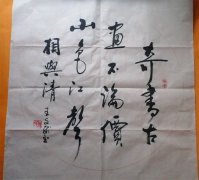 奇書古
畫不論價
山色江聲
相與清